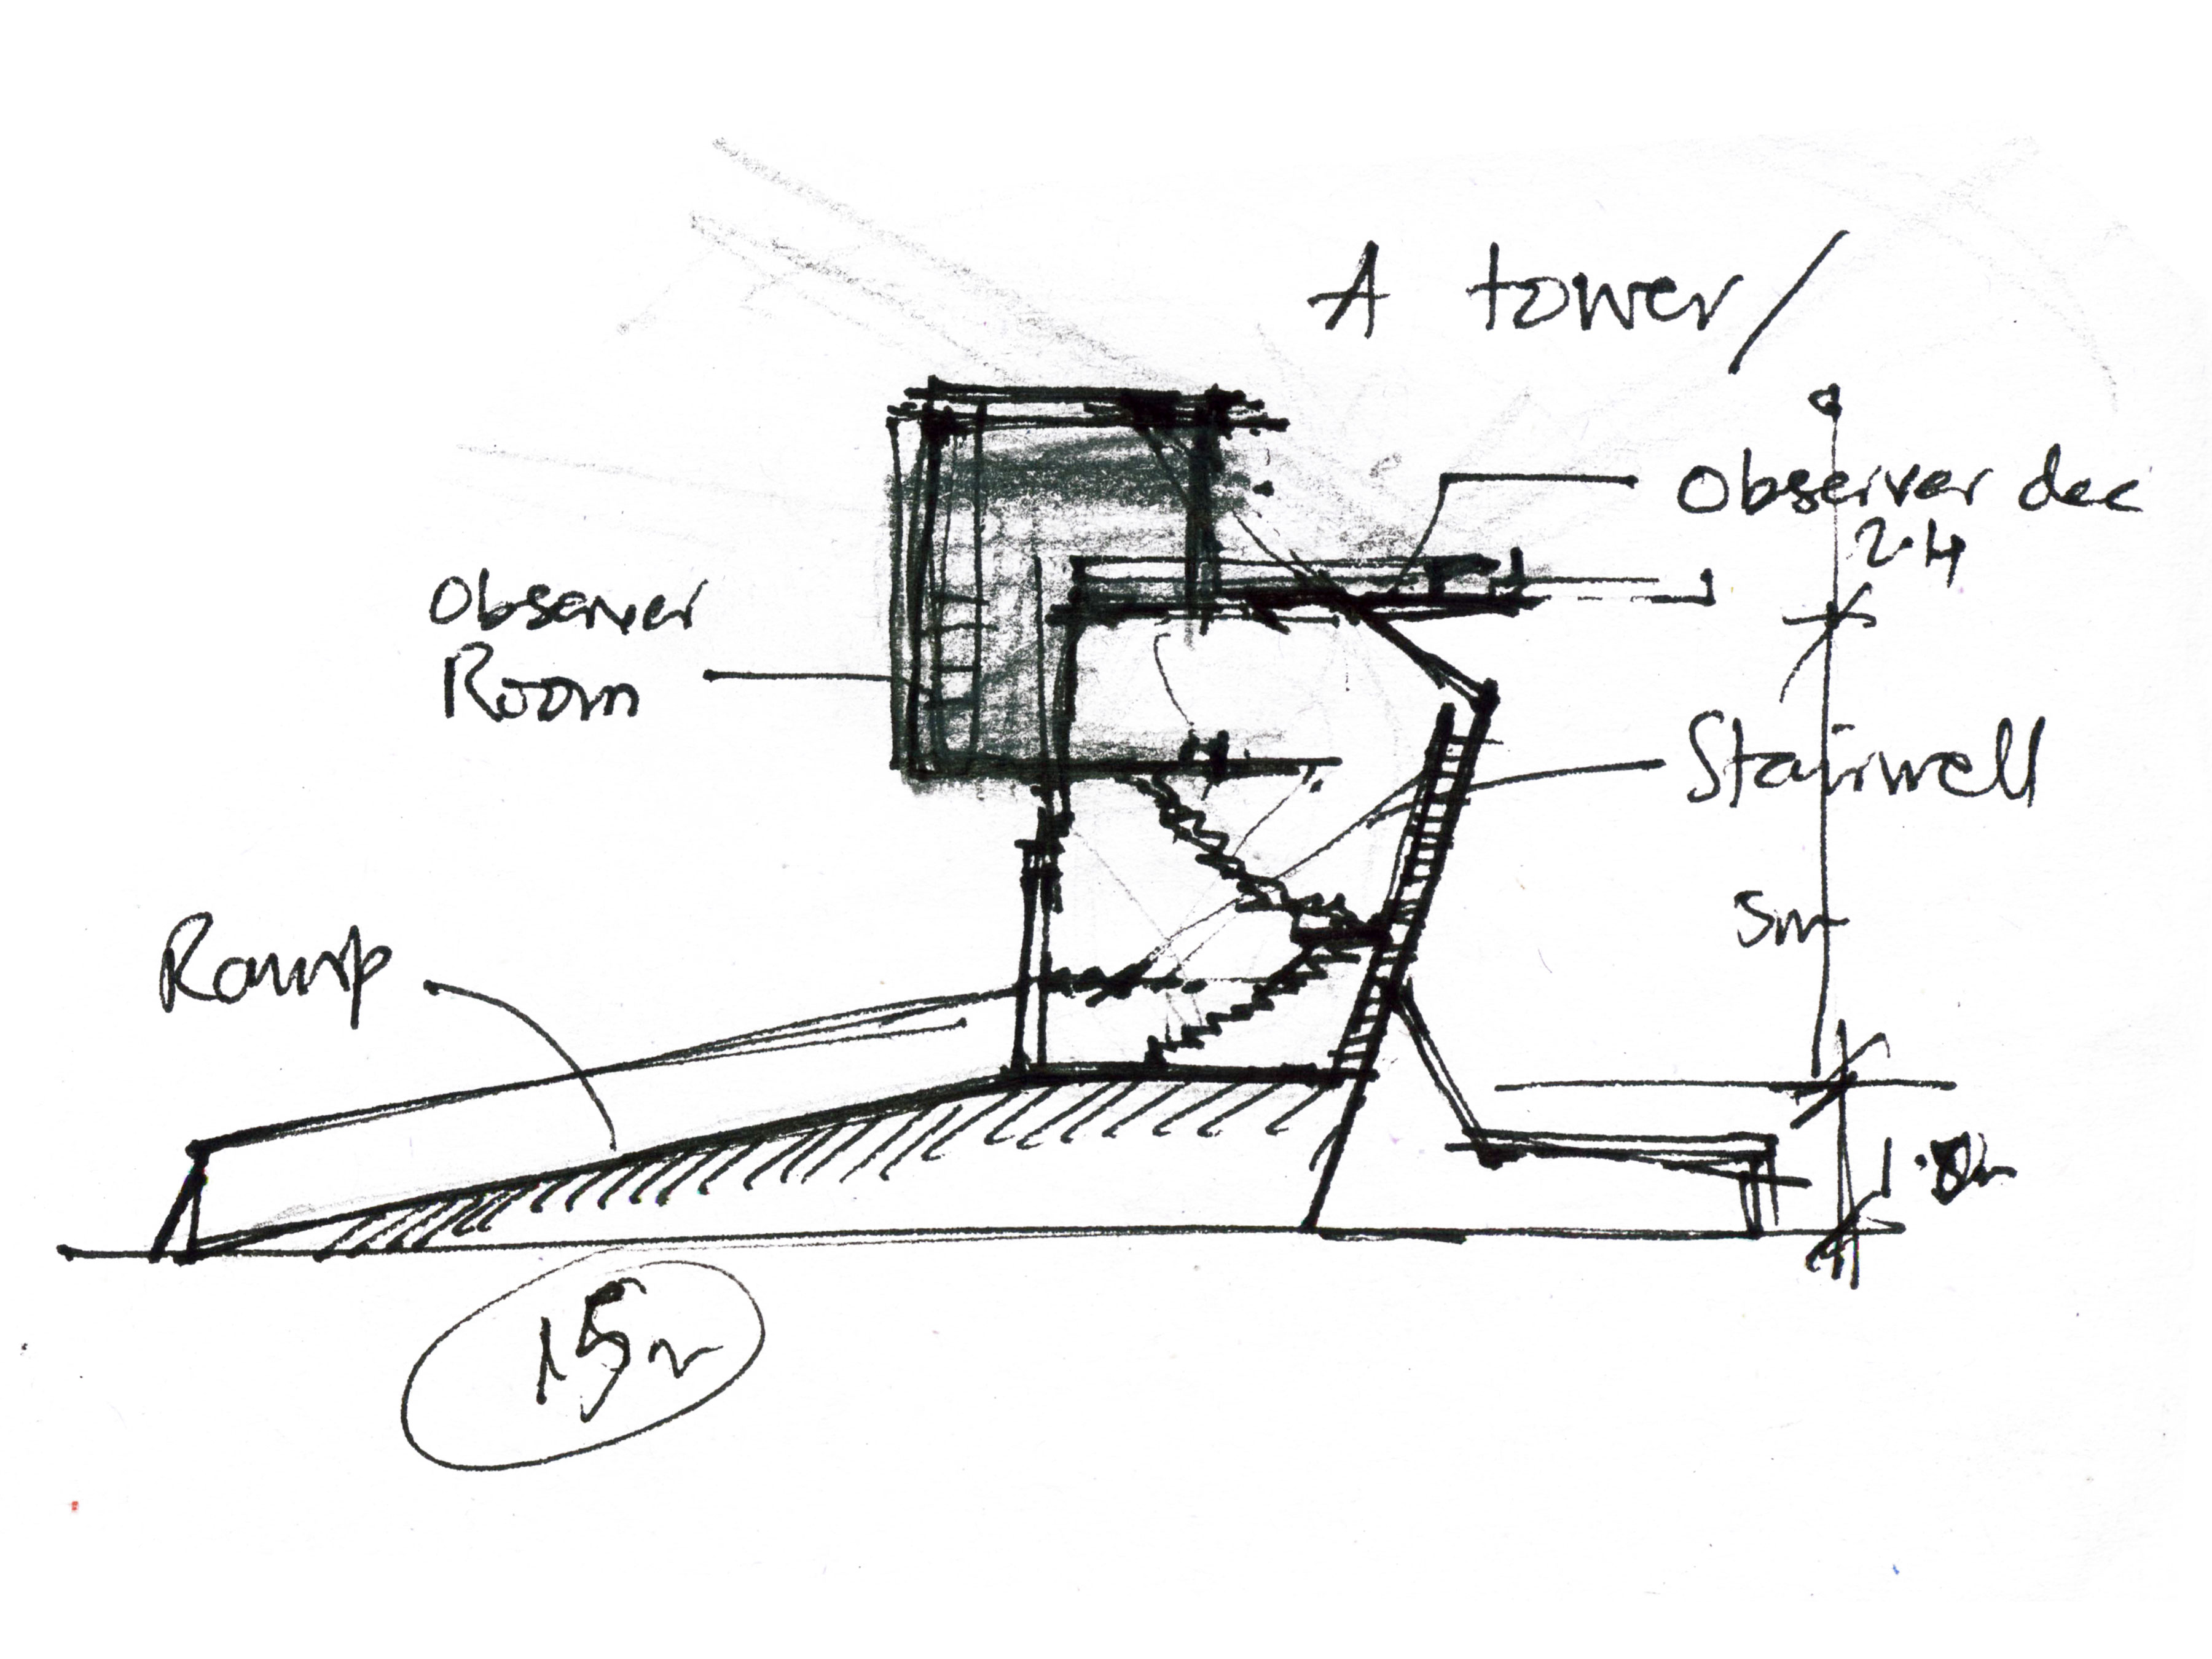 A tower/
Observer dec
2.4
Observer
Room
Stairwell
5m
Ramp
15m